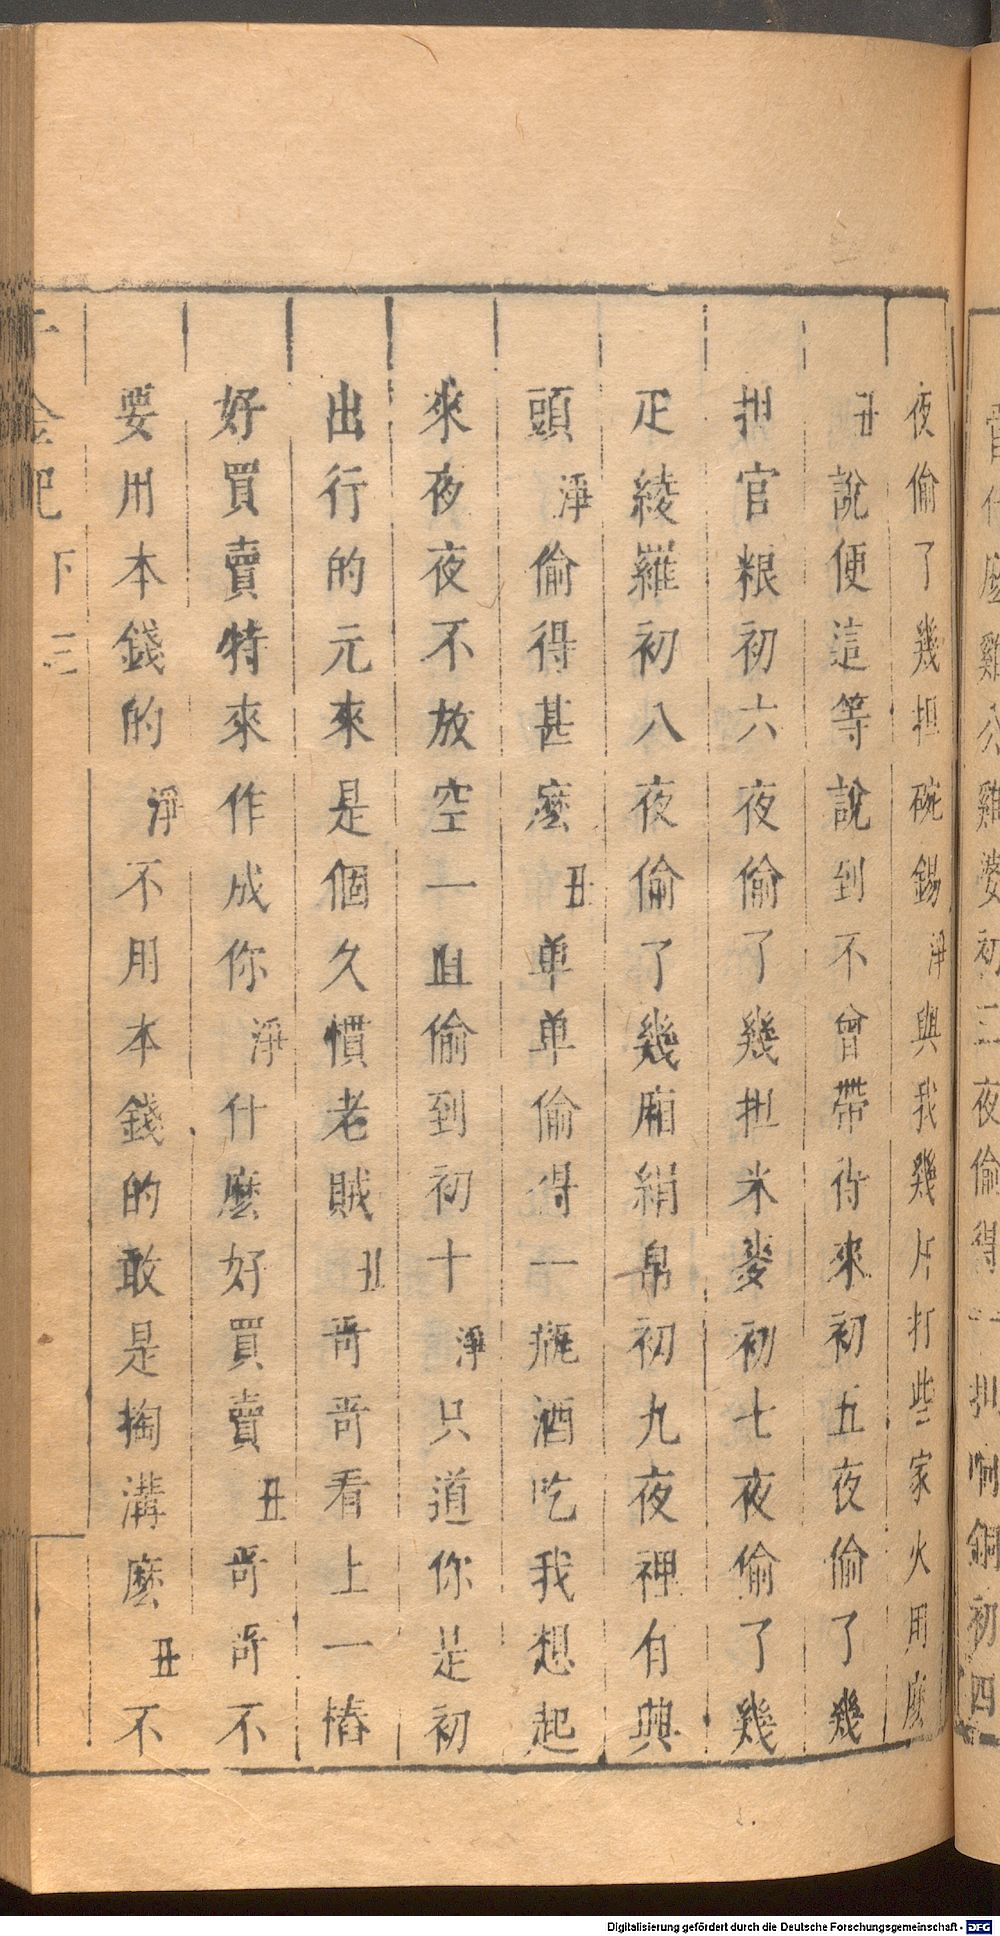 麼雞公雞婆初三夜偷得一担响銅初四
夜偷了幾担碗錫淨與我幾片打些家火用麼
丑說便這等說到不曾帶得來初五夜偷了幾
担官粮初六夜偷了幾担米麥初七夜偷了幾
疋綾羅初八夜偷了幾廂絹帛初九夜裡有興
頭淨偷得甚麼丑单单偷得一瓶酒吃我想起
來夜夜不放空一直偷到初十淨只道你是初
出行的元來是個久慣老賊丑哥哥看上一樁
好買賣特來作成你淨什麼好買賣丑哥哥不
要用本錢的淨不用本錢的敢是掏溝麼丑不
金記 下 三
Digitalisierung gefördert durch die Deutsche Forschungsgemeinschaft - DFG